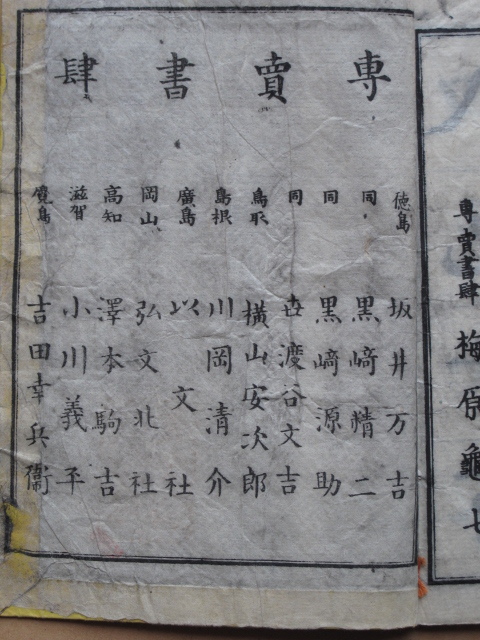 專賣書肆 梅原龜七
專賣書肆
徳島 坂井万吉
同 黒﨑精二
同 黒﨑源助
同 世渡谷文吉
鳥取 横山安次郎
島根 川岡清介
廣島 以文社
岡山 弘文北社
高知 澤本駒吉
滋賀 小川義平
吉田幸兵衞